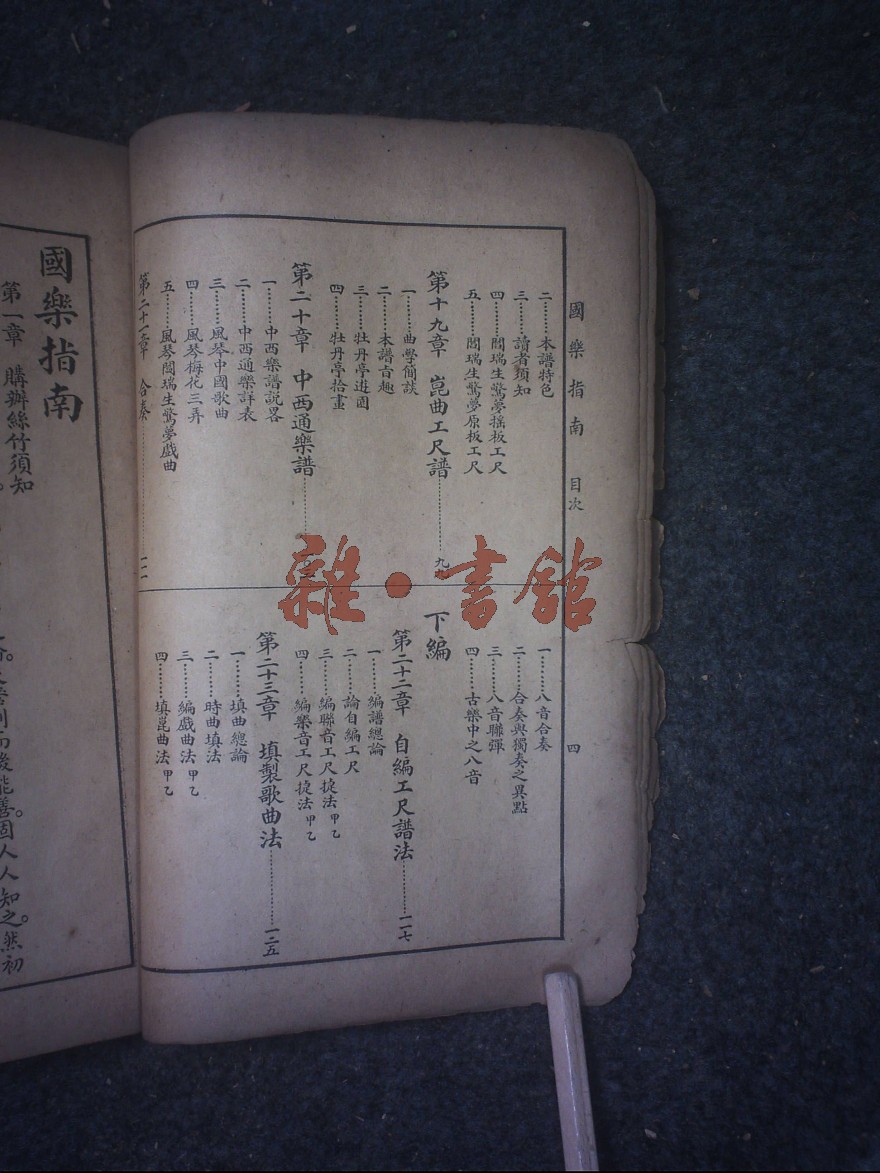 國樂指南 目次 四
二……本譜特色
三……讀者須知
四……閻瑞生驚夢搖板工尺
五……閻瑞生驚夢原板工尺
第十九章 崑曲工尺譜……九九
一……曲學簡談
二……本譜旨趣
三……牡丹亭遊園
四……牡丹亭拾畫
第二十章 中西通樂譜……
一……中西樂譜説畧
二……中西通樂詳表
三……風琴中國歌曲
四……風琴梅花三弄
五……風琴閻瑞生驚夢戲曲
第二十一章 合奏……一一
一……八音合奏
二……合奏與獨奏之異點
三……八音聯彈
四……古樂中之八音
下編
第二十二章 自編工尺譜法……一一七
一……編譜總論
二……論自編工尺
三……編聯音工尺㨗法甲乙
四……編樂音工尺㨗法甲乙
第二十三章 填製歌曲法……一二五
一……填曲總論
二……時曲填法
三……編戲曲法甲乙
四……填崑曲法甲乙
國樂指南
第一章 購辦絲竹須知
而後能善。固人人知之。然初
雜·書館